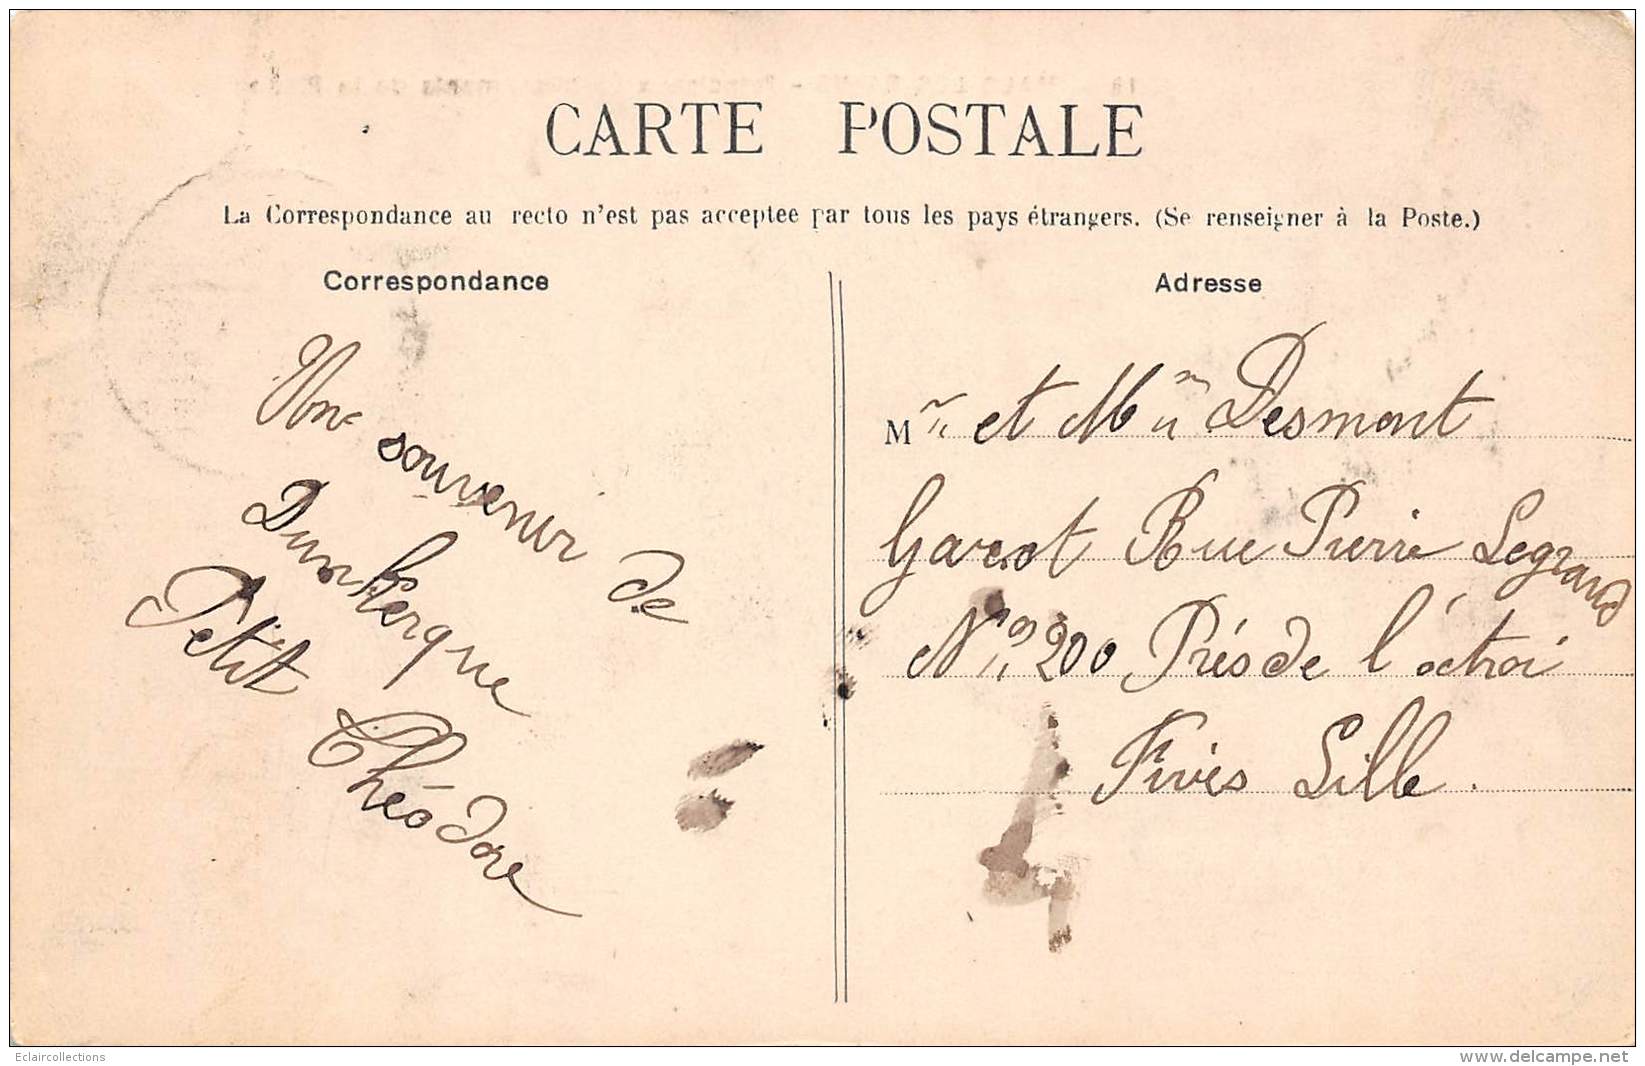 CARTE POSTALE
La Correspondance au recto n'est pas acceptée par tous les pays étrangers. (Se renseigner à la Poste.)
Correspondance
Une
souvenir de
Dunkerque
Petit
Théodore
Adresse
Mr et Mm Desmont
Rue Pierre Legrand
No 200 Près de l'octroi
Fives Lille.
Eclaircollections
www.delcampe.net